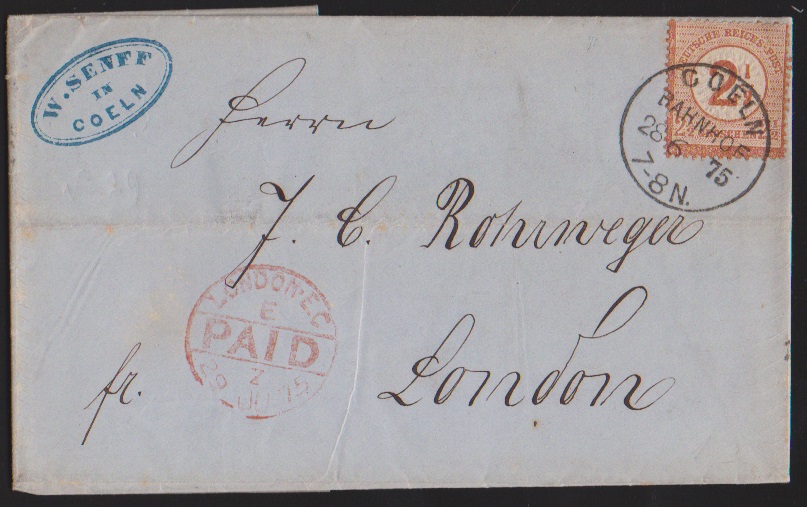 W. SENFF
IN
COELN
DEUTSCHE REICHS-POST
2 1
2½ GROSCHEN
COELN
BAHNHOF
28 6 75
7-8 N.
Herrn
J. C. Rohrweger
London
LONDON·E.C
E
PAID
Z
29 JU 75
fr.